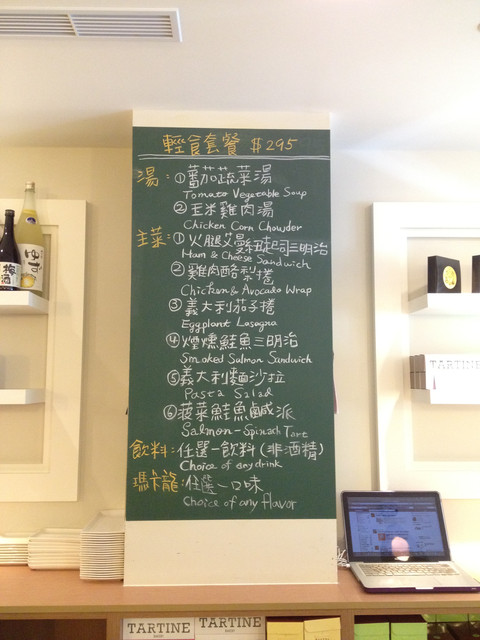 輕食套餐 $295
湯:①蕃茄蔬菜湯
Tomato Vegetable Soup
②玉米雞肉湯
Chicken Corn Chowder
主菜:①火腿艾曼紐起司三明治
Ham & Cheese Sandwich
②雞肉酪梨捲
Chicken & Avocado Wrap
③義大利茄子捲
Eggplant Lasagna
④煙燻鮭魚三明治
Smoked Salmon Sandwich
⑤義大利麵沙拉
Pasta Salad
⑥菠菜鮭魚鹹派
Salmon-Spinach Tart
飲料:任選一飲料(非酒精)
Choice of any drink
瑪卡龍:任選一口味
Choice of any flavor
梅酒
ゆず
TARTINE
TARTINE
TARTINE